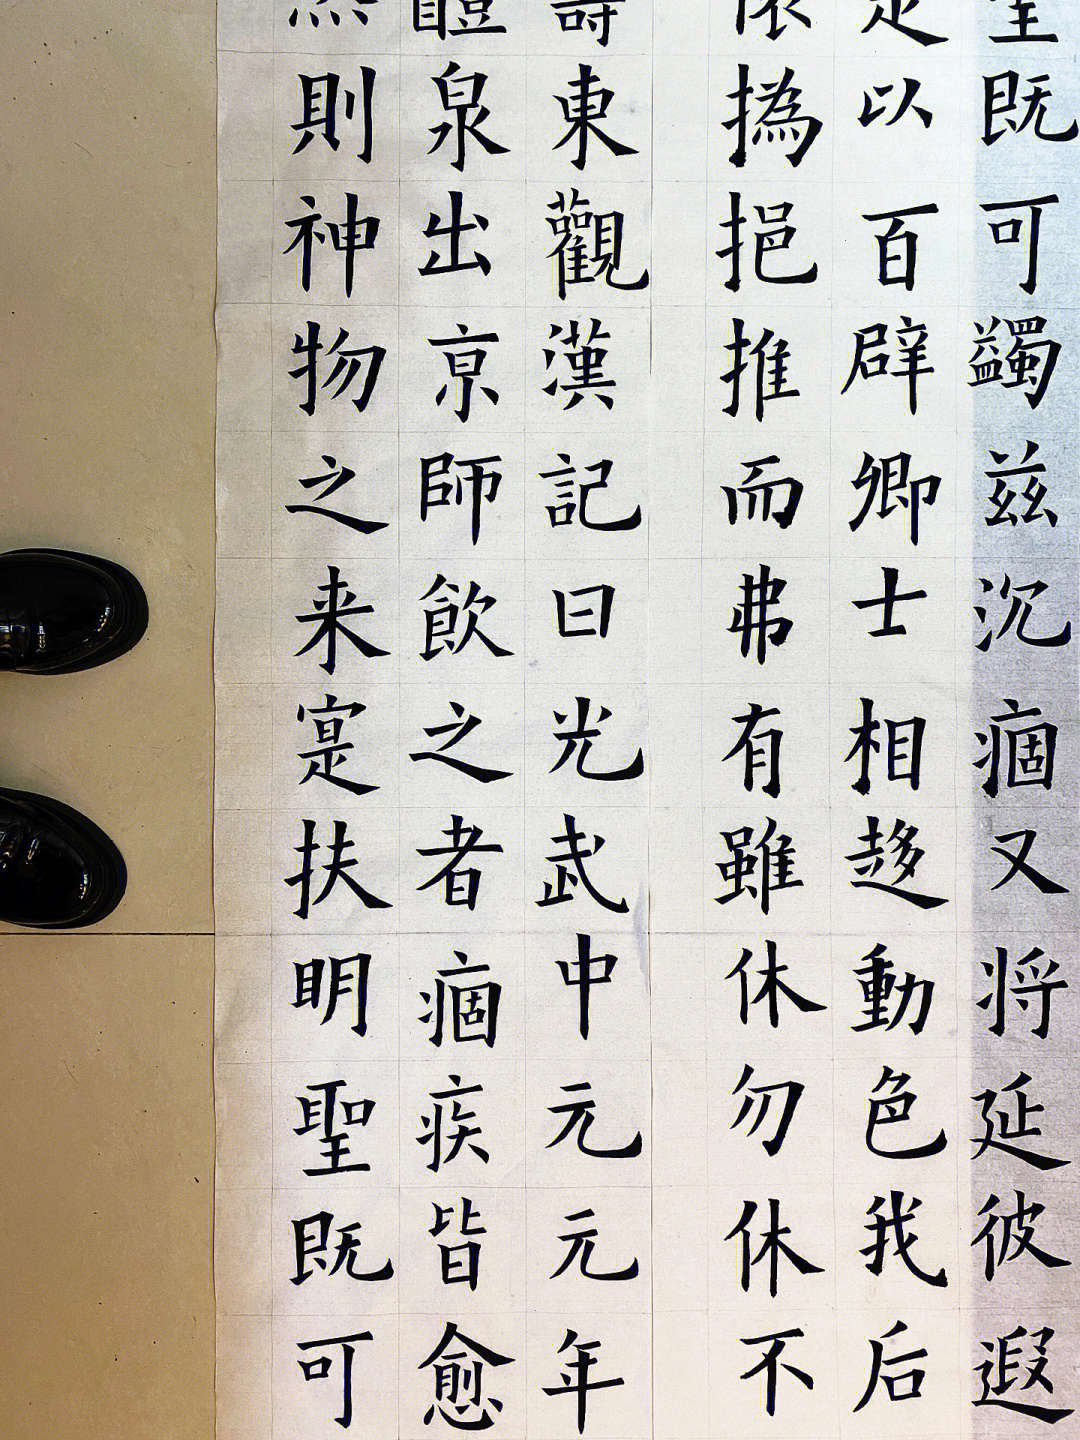 聖既可蠲兹沉痼又将延彼遐
是以百辟卿士相趍動色我后
懷撝挹推而弗有雖休勿休不
壽東觀漢記曰光武中元元年
醴泉出亰師飲之者痼疾皆愈
然則神物之来寔扶明聖既可